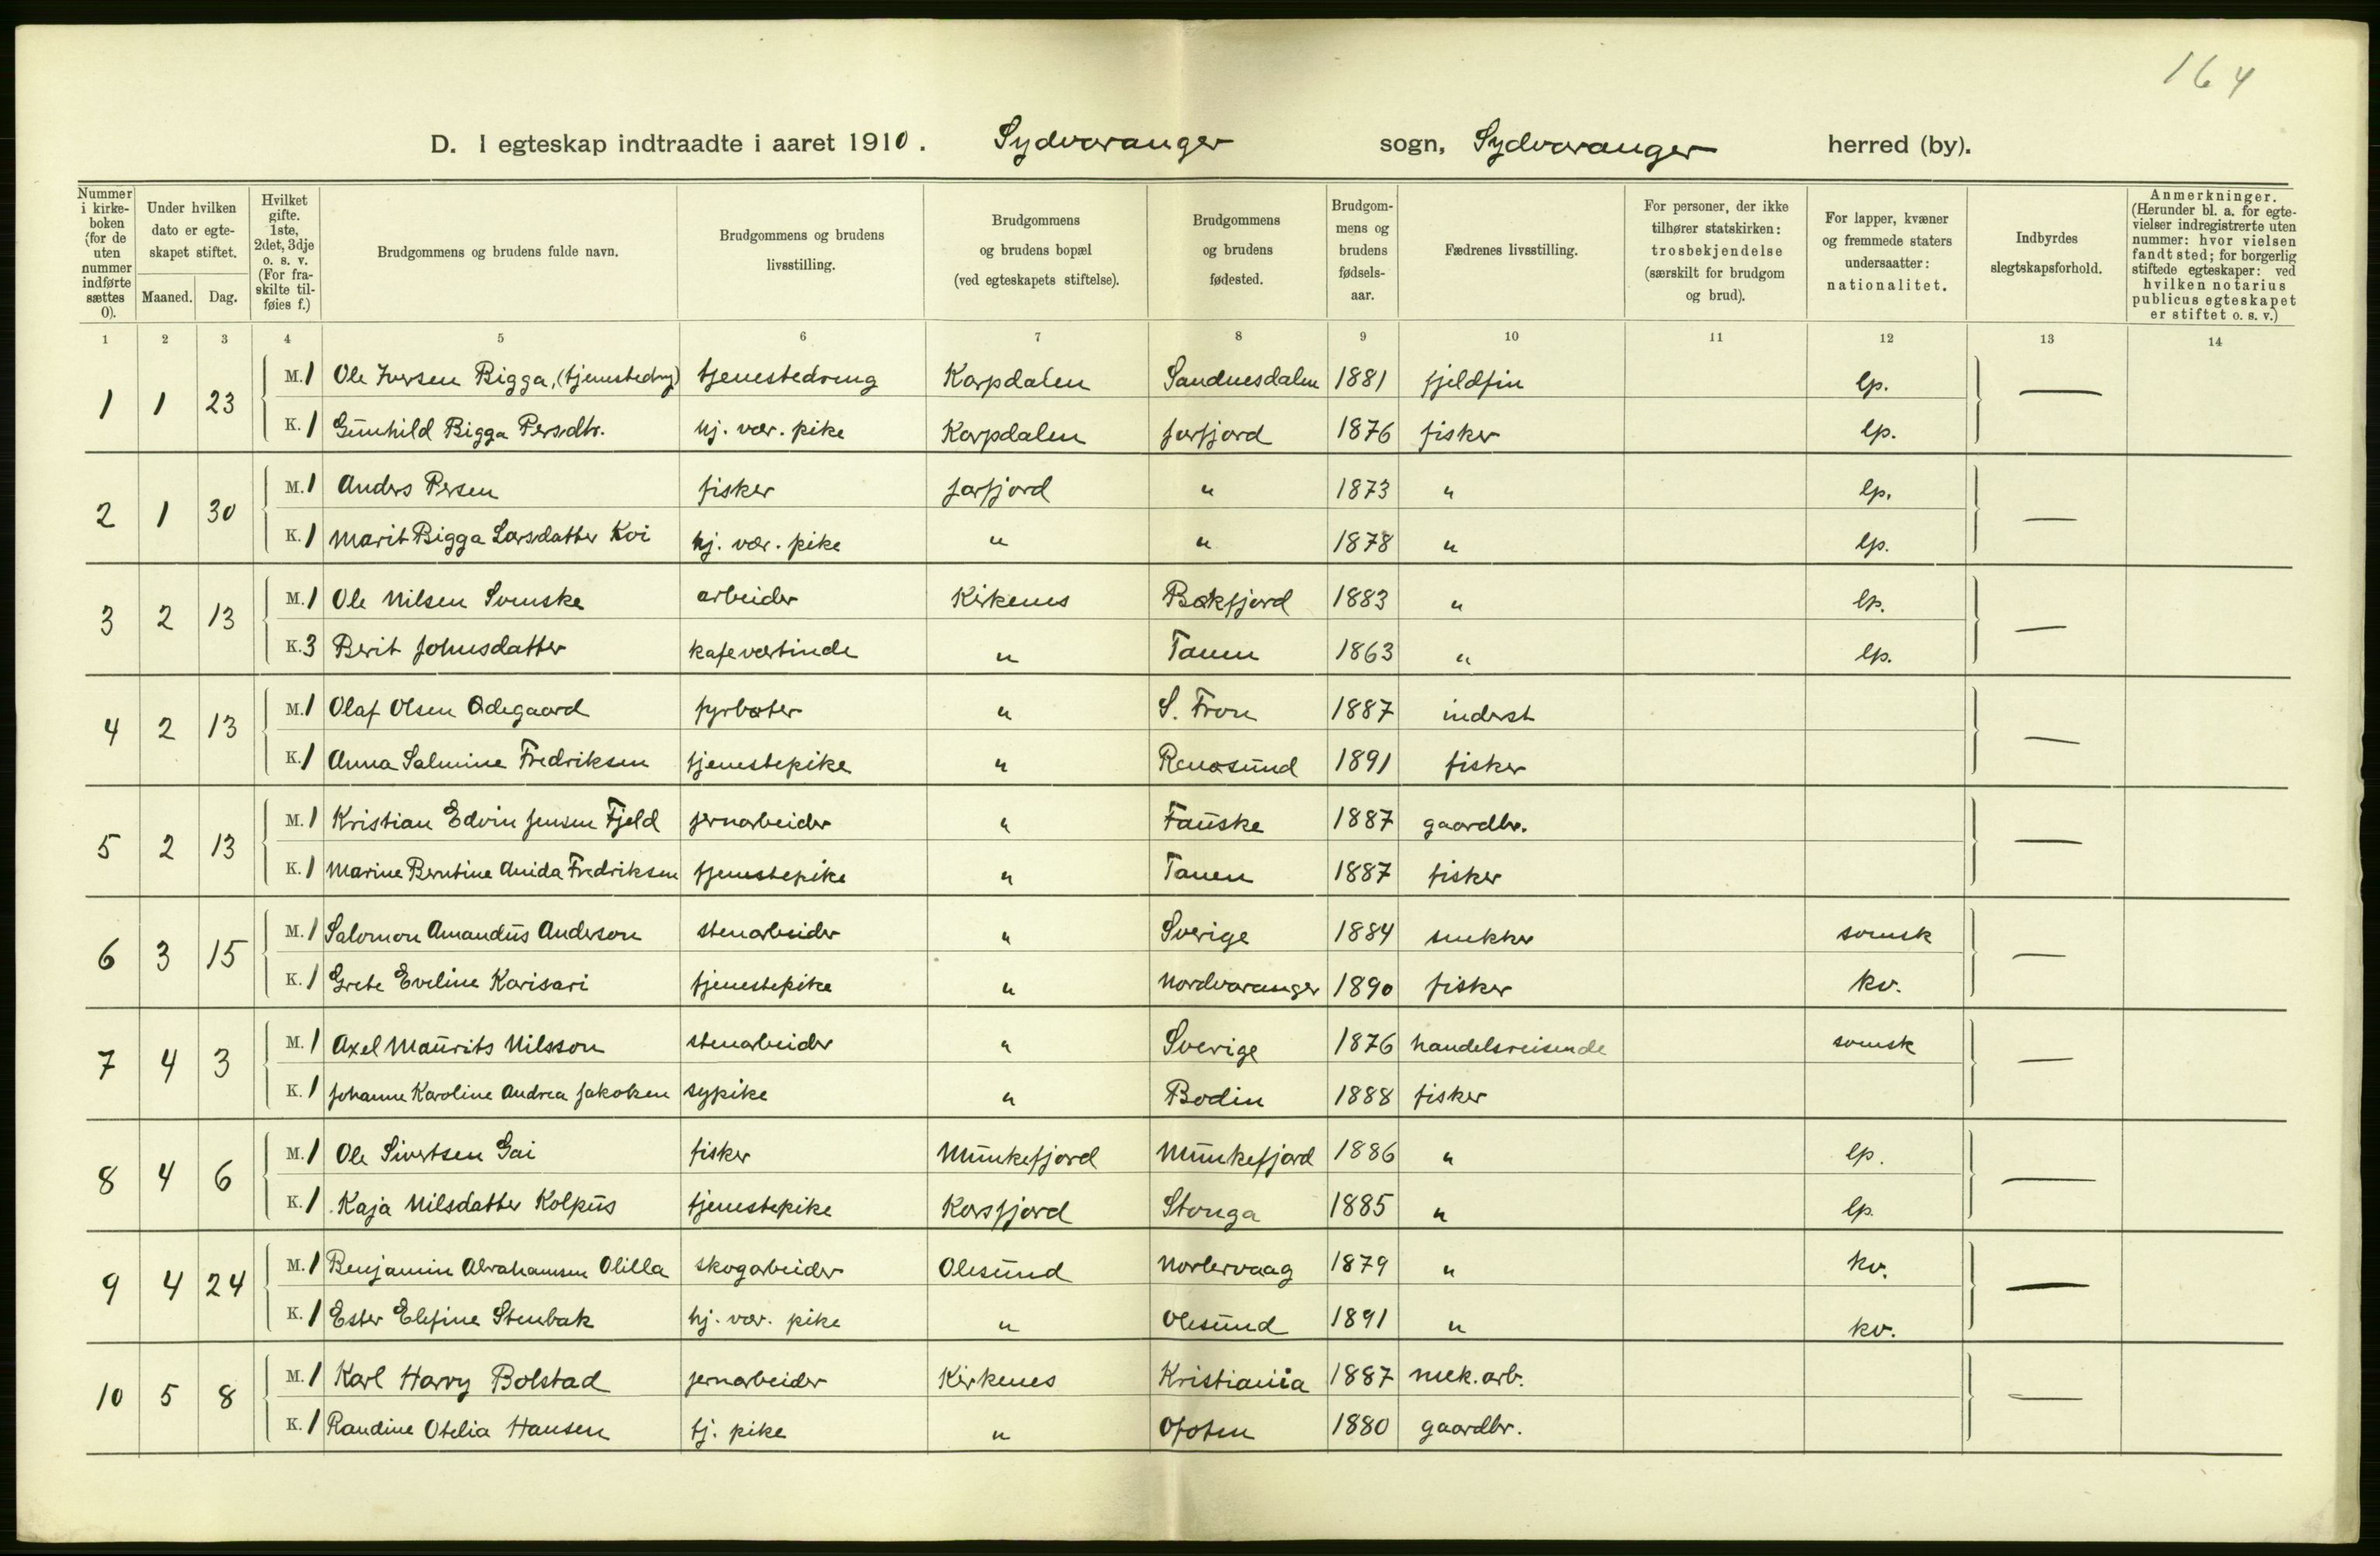 164
D. I egteskap indtraadte i aaret 1910. Sydvaranger sogn, Sydvaranger herred (by).
Nummer i kirke-boken (for de uten nummer indførte sættes 0).
Under hvilken dato er egte-skapet stiftet.
Maaned. Dag.
Hvilket gifte. 1ste, 2det, 3dje o. s. v. (For fra-skilte til-føies f.)
Brudgommens og brudens fulde navn.
Brudgommens og brudens livsstilling.
Brudgommens og brudens bopæl (ved egteskapets stiftelse).
Brudgommens og brudens fødested.
Brudgom-mens og brudens fødsels-aar.
Fædrenes livsstilling.
For personer, der ikke tilhører statskirken: trosbekjendelse (særskilt for brudgom og brud).
For lapper, kvæner og fremmede staters undersaatter: nationalitet.
Indbyrdes slegtskapsforhold.
Anmerkninger. (Herunder bl. a. for egte-vielser indregistrerte uten nummer: hvor vielsen fandt sted; for borgerlig stiftede egteskaper: ved hvilken notarius publicus egteskapet er stiftet o. s. v.)
1 2 3 4 5 6 7 8 9 10 11 12 13 14
1 1 23 M. 1 Ole Iversen Bigga, (tjenestedrg) tjenestedreng Karpdalen Sandnesdalen 1881 fjeldfin lp. —
K. 1 Gunhild Bigga Persdtr. hj. vær. pike Karpdalen Jarfjord 1876 fisker lp.
2 1 30 M. 1 Anders Persen fisker Jarfjord " 1873 " lp. —
K. 1 Marit Bigga Larsdatter Koi hj. vær. pike " " 1878 " lp.
3 2 13 M. 1 Ole Nilsen Svenske arbeider Kirkenes Bøkfjord 1883 " lp. —
K. 3 Berit Johnsdatter kafeværtinde " Tanen 1863 " lp.
4 2 13 M. 1 Olaf Olsen Ødegaard fyrbøter " S. Fron 1887 inderst —
K. 1 Anna Salmine Fredriksen tjenestepike " Renøsund 1891 fisker
5 2 13 M. 1 Kristian Edvin Jensen Fjeld jernarbeider " Fauske 1887 gaardbr. —
K. 1 Marine Berntine Anida Fredriksen tjenestepike " Tanen 1887 fisker
6 3 15 M. 1 Salomon Amandus Anderson stenarbeider " Sverige 1884 snekker svensk —
K. 1 Grete Eveline Karisari tjenestepike " Nordvaranger 1890 fisker kv.
7 4 3 M. 1 Axel Maurits Nilsson stenarbeider " Sverige 1876 handelsreisende svensk —
K. 1 Johanne Karoline Andrea Jakobsen sypike " Bodin 1888 fisker
8 4 6 M. 1 Ole Sivertsen Gai fisker Munkefjord Munkefjord 1886 " lp. —
K. 1 Kaja Nilsdatter Kolpus tjenestepike Korsfjord Stonga 1885 " lp.
9 4 24 M. 1 Benjamin Abrahamsen Olilla skogarbeider Olesund Norlervaag 1879 " kv. —
K. 1 Ester Elefine Stenbak hj. vær. pike " Olesund 1891 " kv.
10 5 8 M. 1 Karl Harry Bolstad jernarbeider Kirkenes Kristiania 1887 mek. arb. —
K. 1 Randine Otelia Hansen tj. pike " Ofoten 1880 gaardbr.